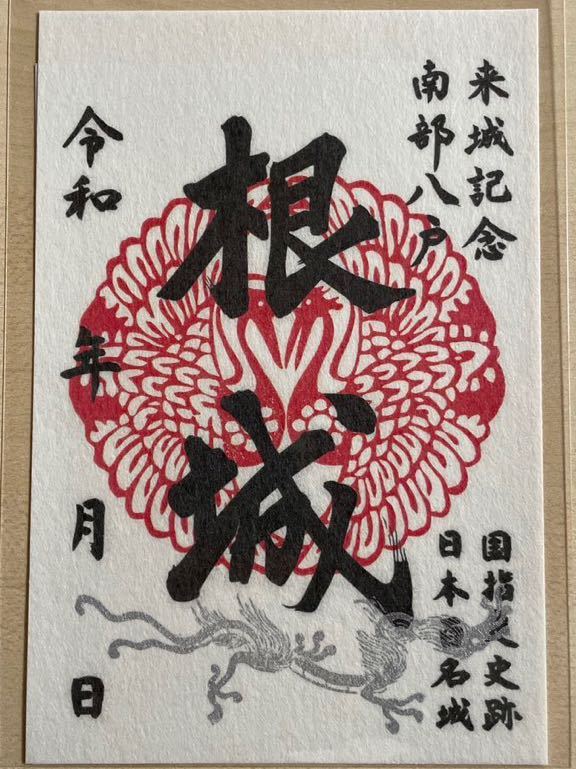 来城記念
南部八戸
根城
国指定史跡
日本百名城
令和 年 月 日